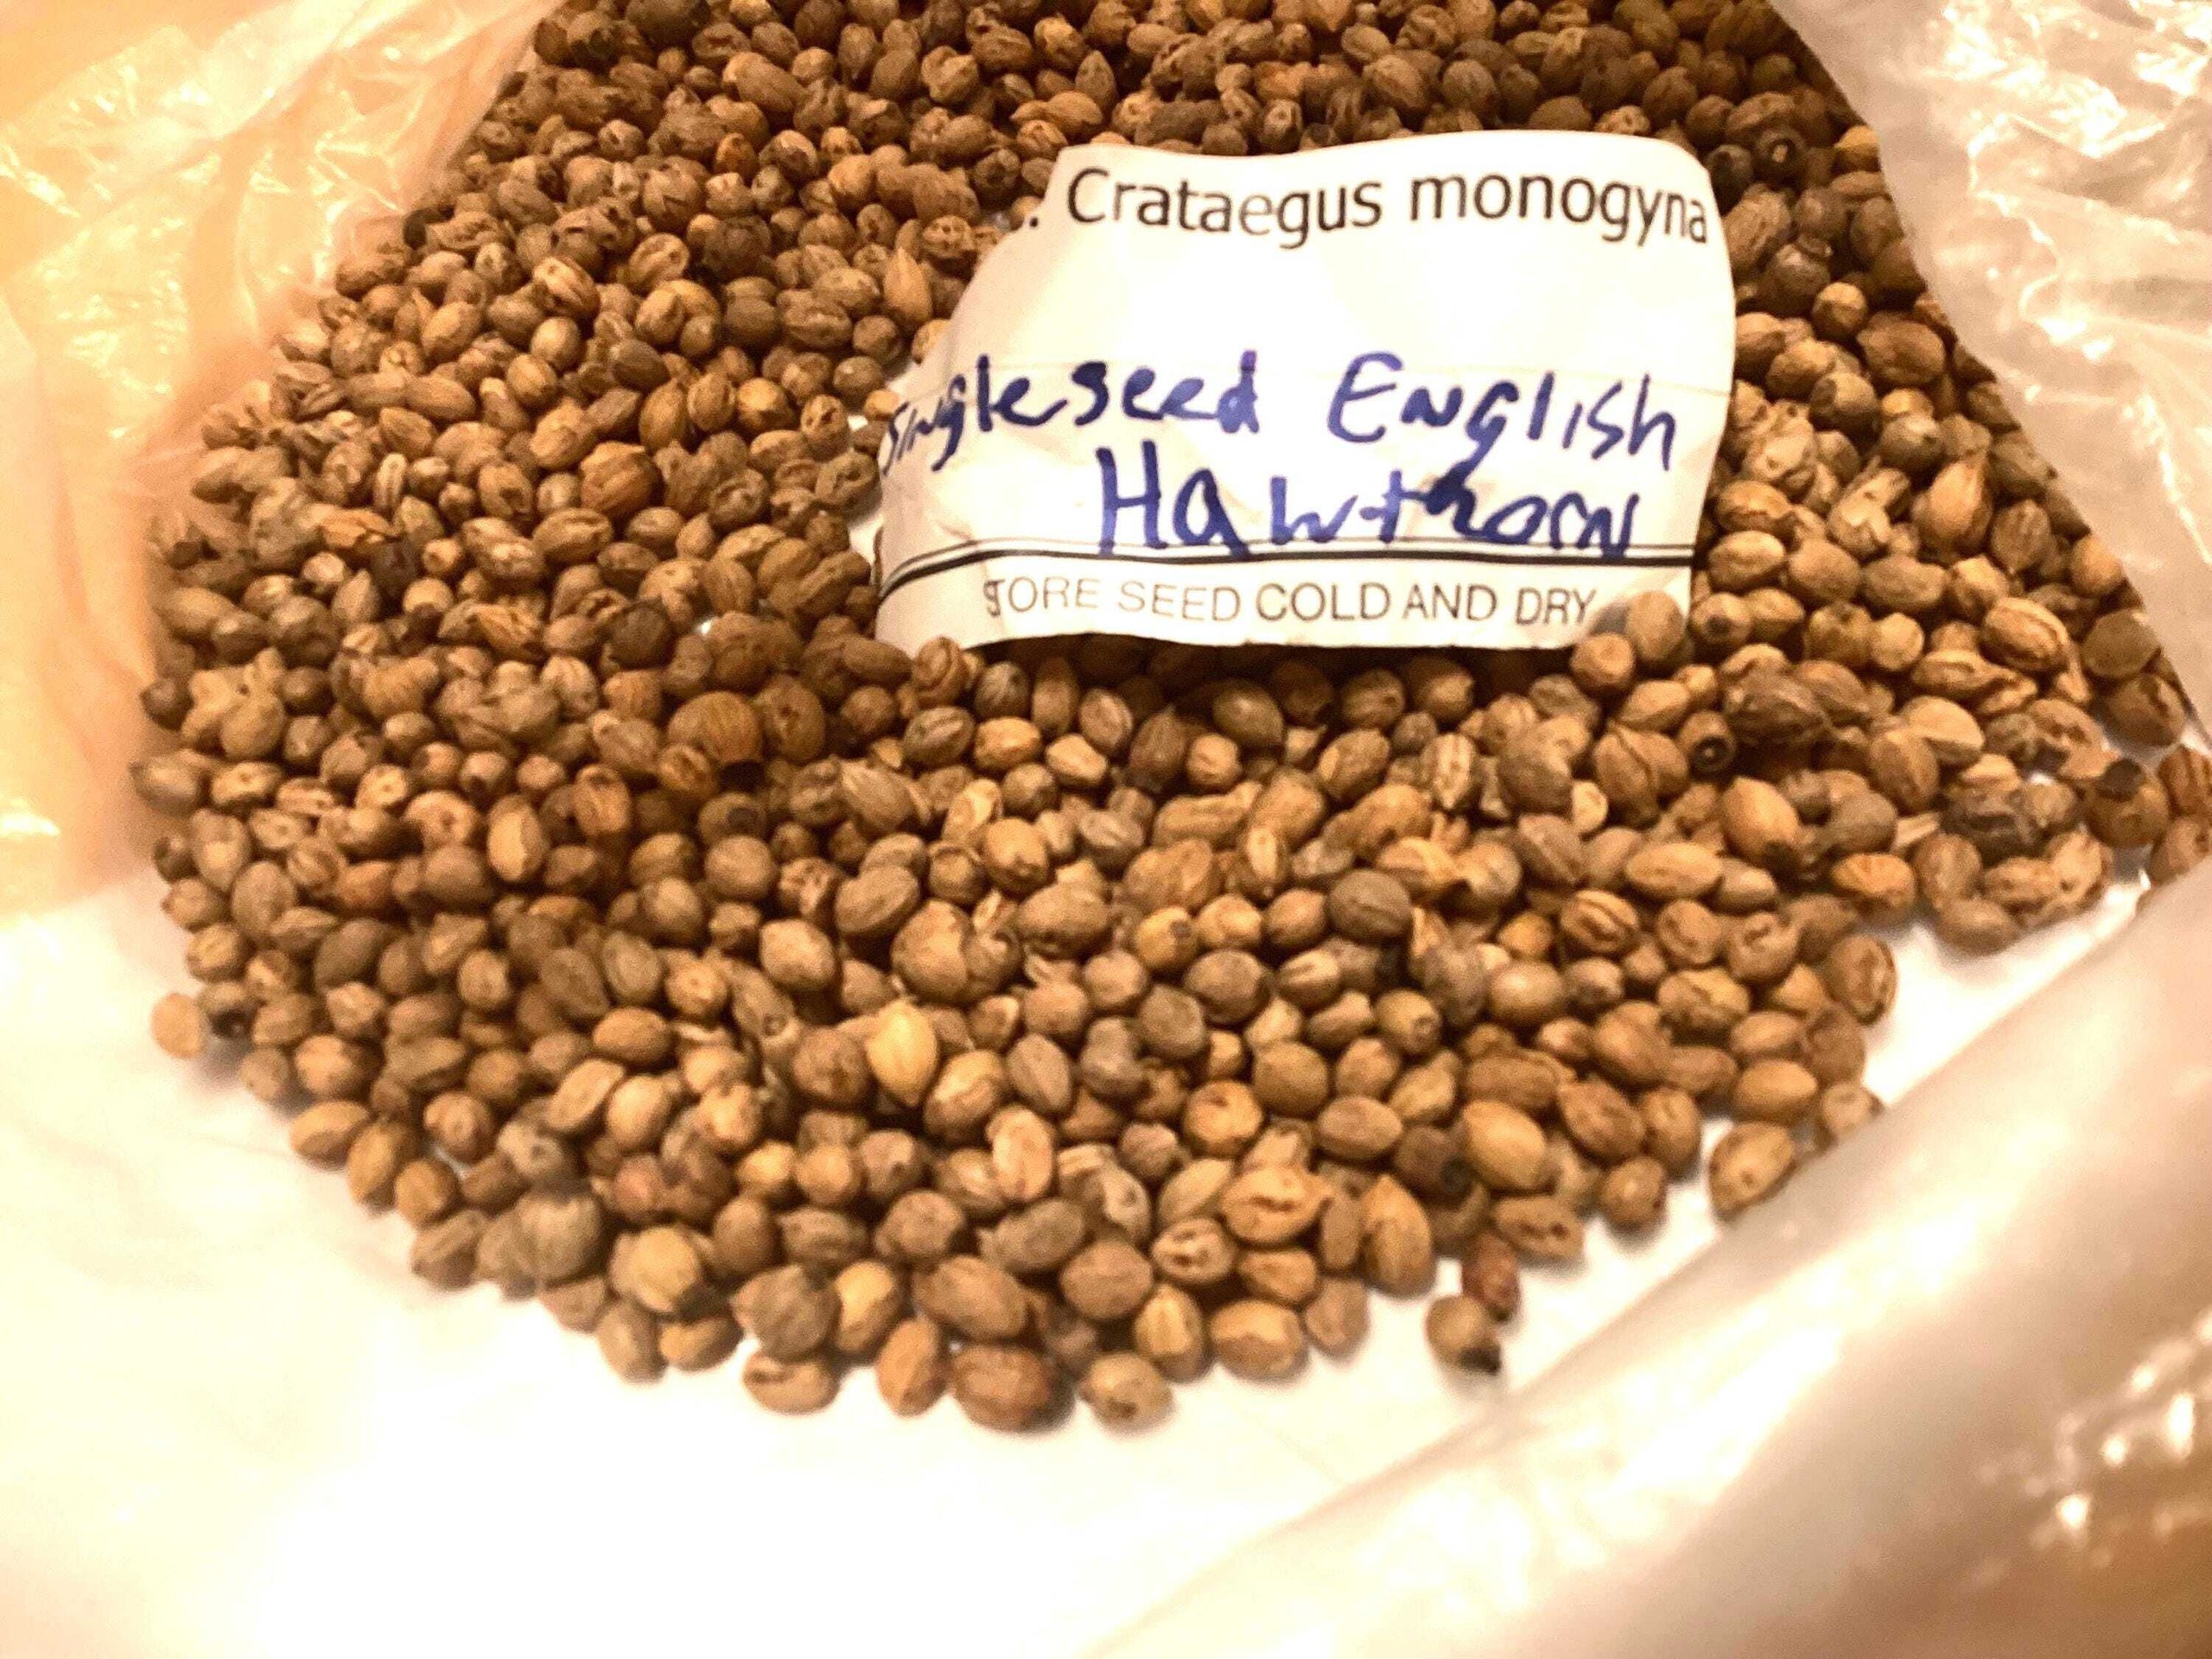 . Crataegus monogyna
Singleseed English
Hawthorn
STORE SEED COLD AND DRY